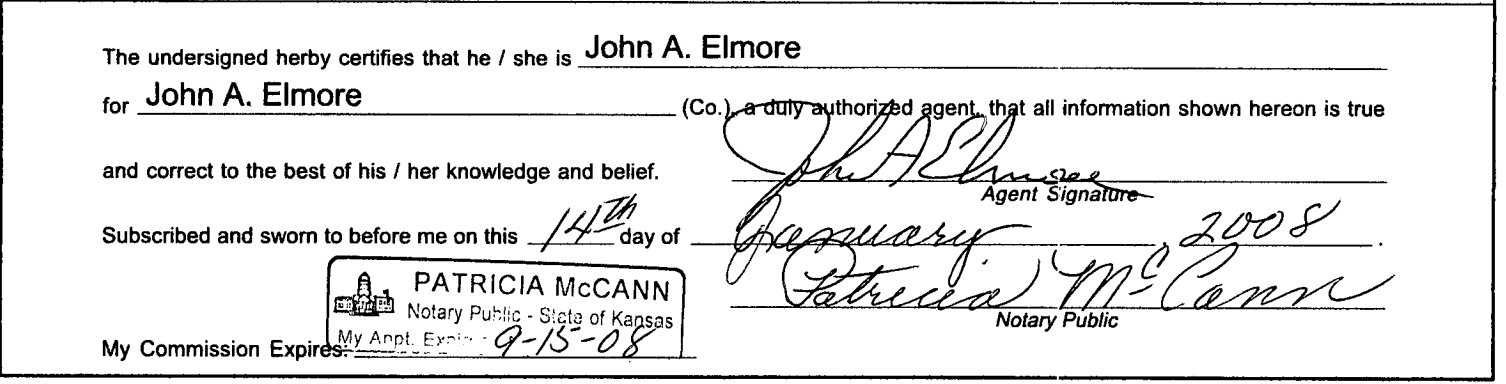 The undersigned herby certifies that he / she is John A. Elmore
for John A. Elmore (Co.), a duly authorized agent, that all information shown hereon is true
and correct to the best of his / her knowledge and belief. John A Elmore
Agent Signature
Subscribed and sworn to before me on this 14th day of January, 2008.
Patricia McCann
Notary Public
PATRICIA McCANN
Notary Public - State of Kansas
My Appt. Expires 9-15-08
My Commission Expires: